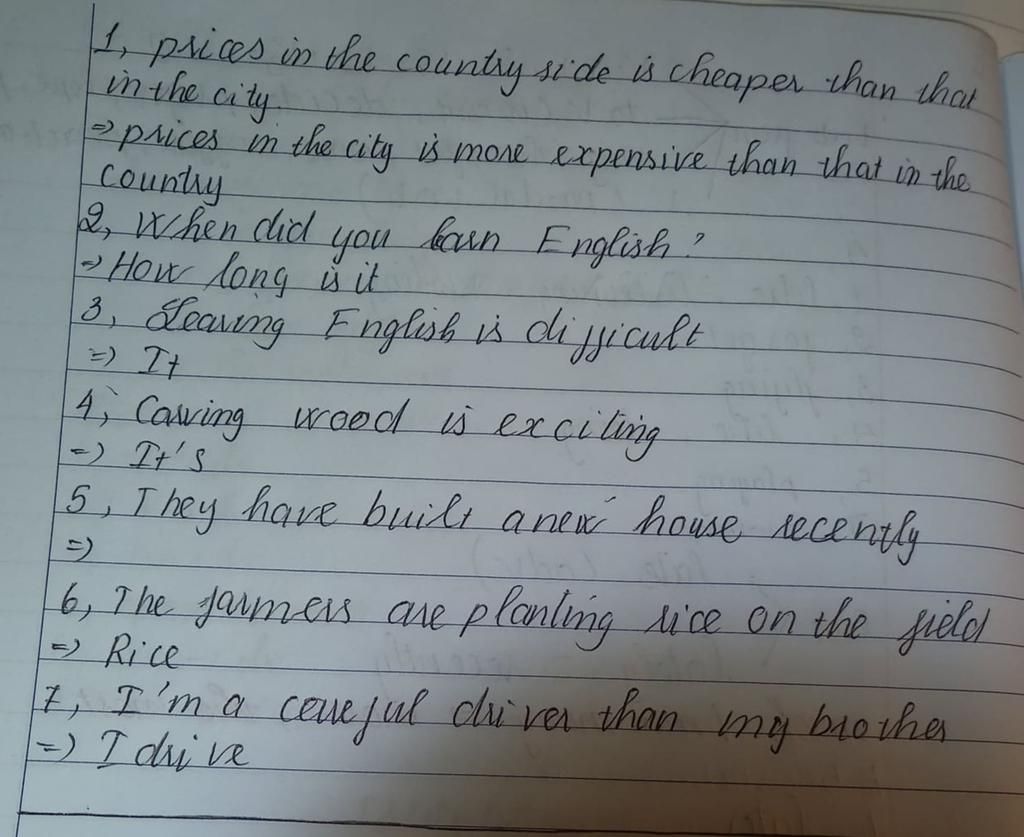 1, prices in the country side is cheaper than that
in the city.
=> prices in the city is more expensive than that in the
country
2, When did you learn English?
=> How long is it
3, Learning English is difficult
=> It
4, Carving wood is exciting
=> It's
5, They have built a new house recently
=>
6, The farmers are planting rice on the field
=> Rice
7, I'm a careful driver than my brother
=> I drive